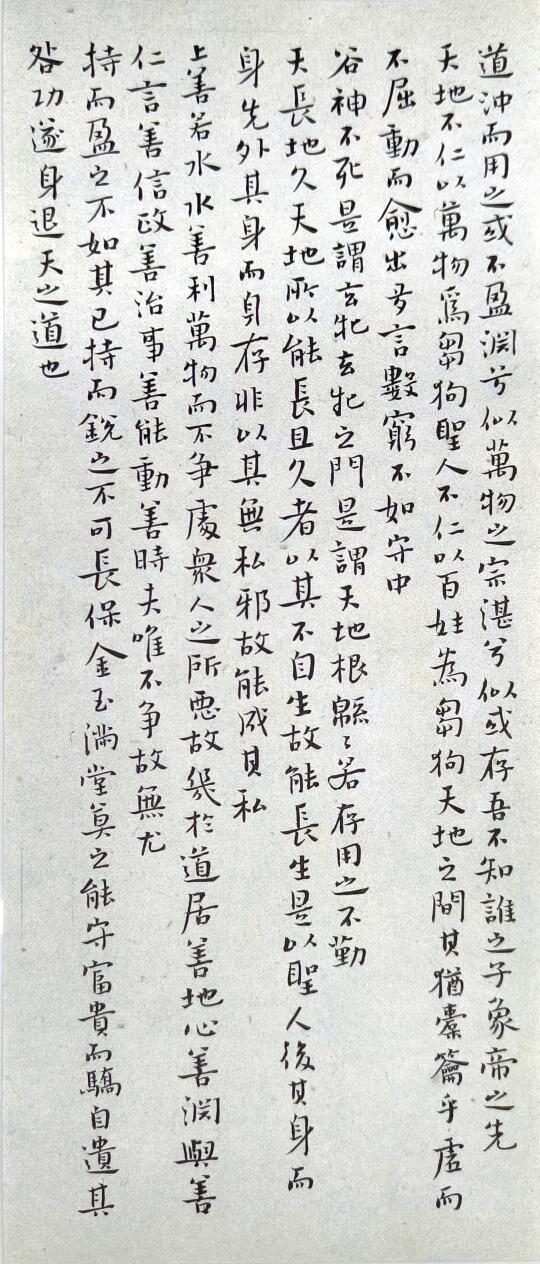 道沖而用之或不盈淵兮似萬物之宗湛兮似或存吾不知誰之子象帝之先
天地不仁以萬物爲芻狗聖人不仁以百姓為芻狗天地之間其猶橐籥乎虛而
不屈動而愈出多言數窮不如守中
谷神不死是謂玄牝玄牝之門是謂天地根緜〻若存用之不勤
天長地久天地所以能長且久者以其不自生故能長生是以聖人後其身而
身先外其身而身存非以其無私邪故能成其私
上善若水水善利萬物而不爭處衆人之所惡故幾於道居善地心善淵與善
仁言善信政善治事善能動善時夫唯不爭故無尤
持而盈之不如其已持而銳之不可長保金玉滿堂莫之能守富貴而驕自遺其
咎功遂身退天之道也